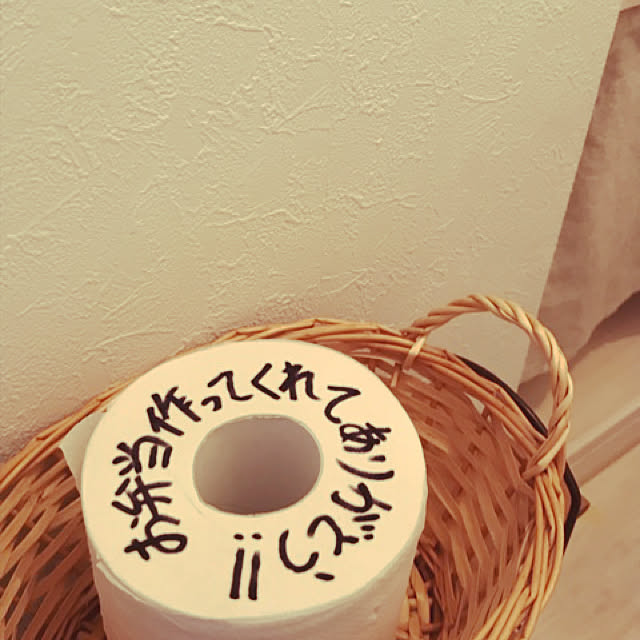 お弁当作ってくれてありがとう!!